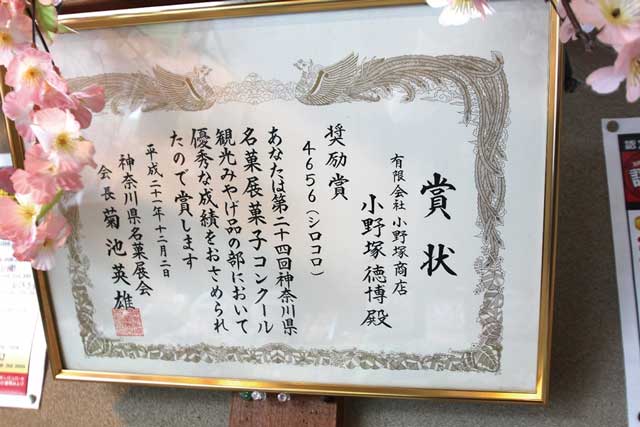 賞状
有限会社 小野塚商店
小野塚 徳博 殿
奨励賞
4656(シロコロ)
あなたは第二十四回神奈川県
名菓展菓子コンクール
観光みやげ品の部において
優秀な成績をおさめられ
たので賞します
平成二十一年十二月二日
神奈川県名菓展会
会長 菊池英雄